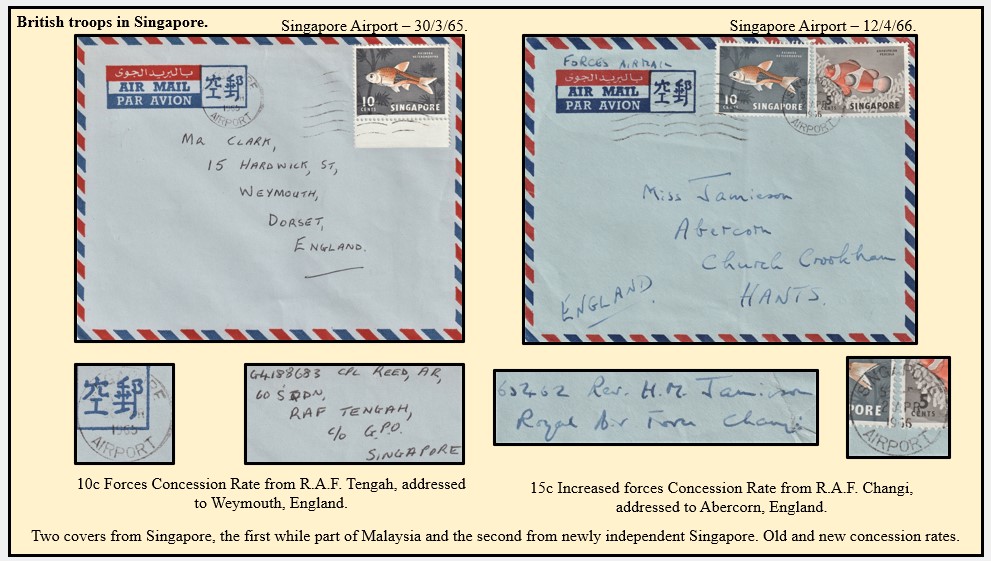 British troops in Singapore.
Singapore Airport – 30/3/65.
Singapore Airport – 12/4/66.
بالبريد الجوى
AIR MAIL
PAR AVION
空郵
1965
AIRPORT
10
CENTS
SINGAPORE
MR CLARK,
15 HARDWICK, ST,
WEYMOUTH,
DORSET,
ENGLAND.
FORCES AIRMAIL
بالبريد الجوى
AIR MAIL
PAR AVION
空郵
10
CENTS
SINGAPORE
5
CENTS
SINGAPORE
APR
1966
AIRPORT
Miss Jamieson
Abercorn
Church Crookham
HANTS.
ENGLAND
空郵
1965
AIRPORT
G4188683 CPL REED, AR,
60 SQDN,
RAF TENGAH,
c/o G.P.O.
SINGAPORE
Rev. H.M. Jamieson
Royal Air Force Changi
SINGAPORE
PORE
5
CENTS
APR
1966
AIRPORT
10c Forces Concession Rate from R.A.F. Tengah, addressed
to Weymouth, England.
15c Increased forces Concession Rate from R.A.F. Changi,
addressed to Abercorn, England.
Two covers from Singapore, the first while part of Malaysia and the second from newly independent Singapore. Old and new concession rates.